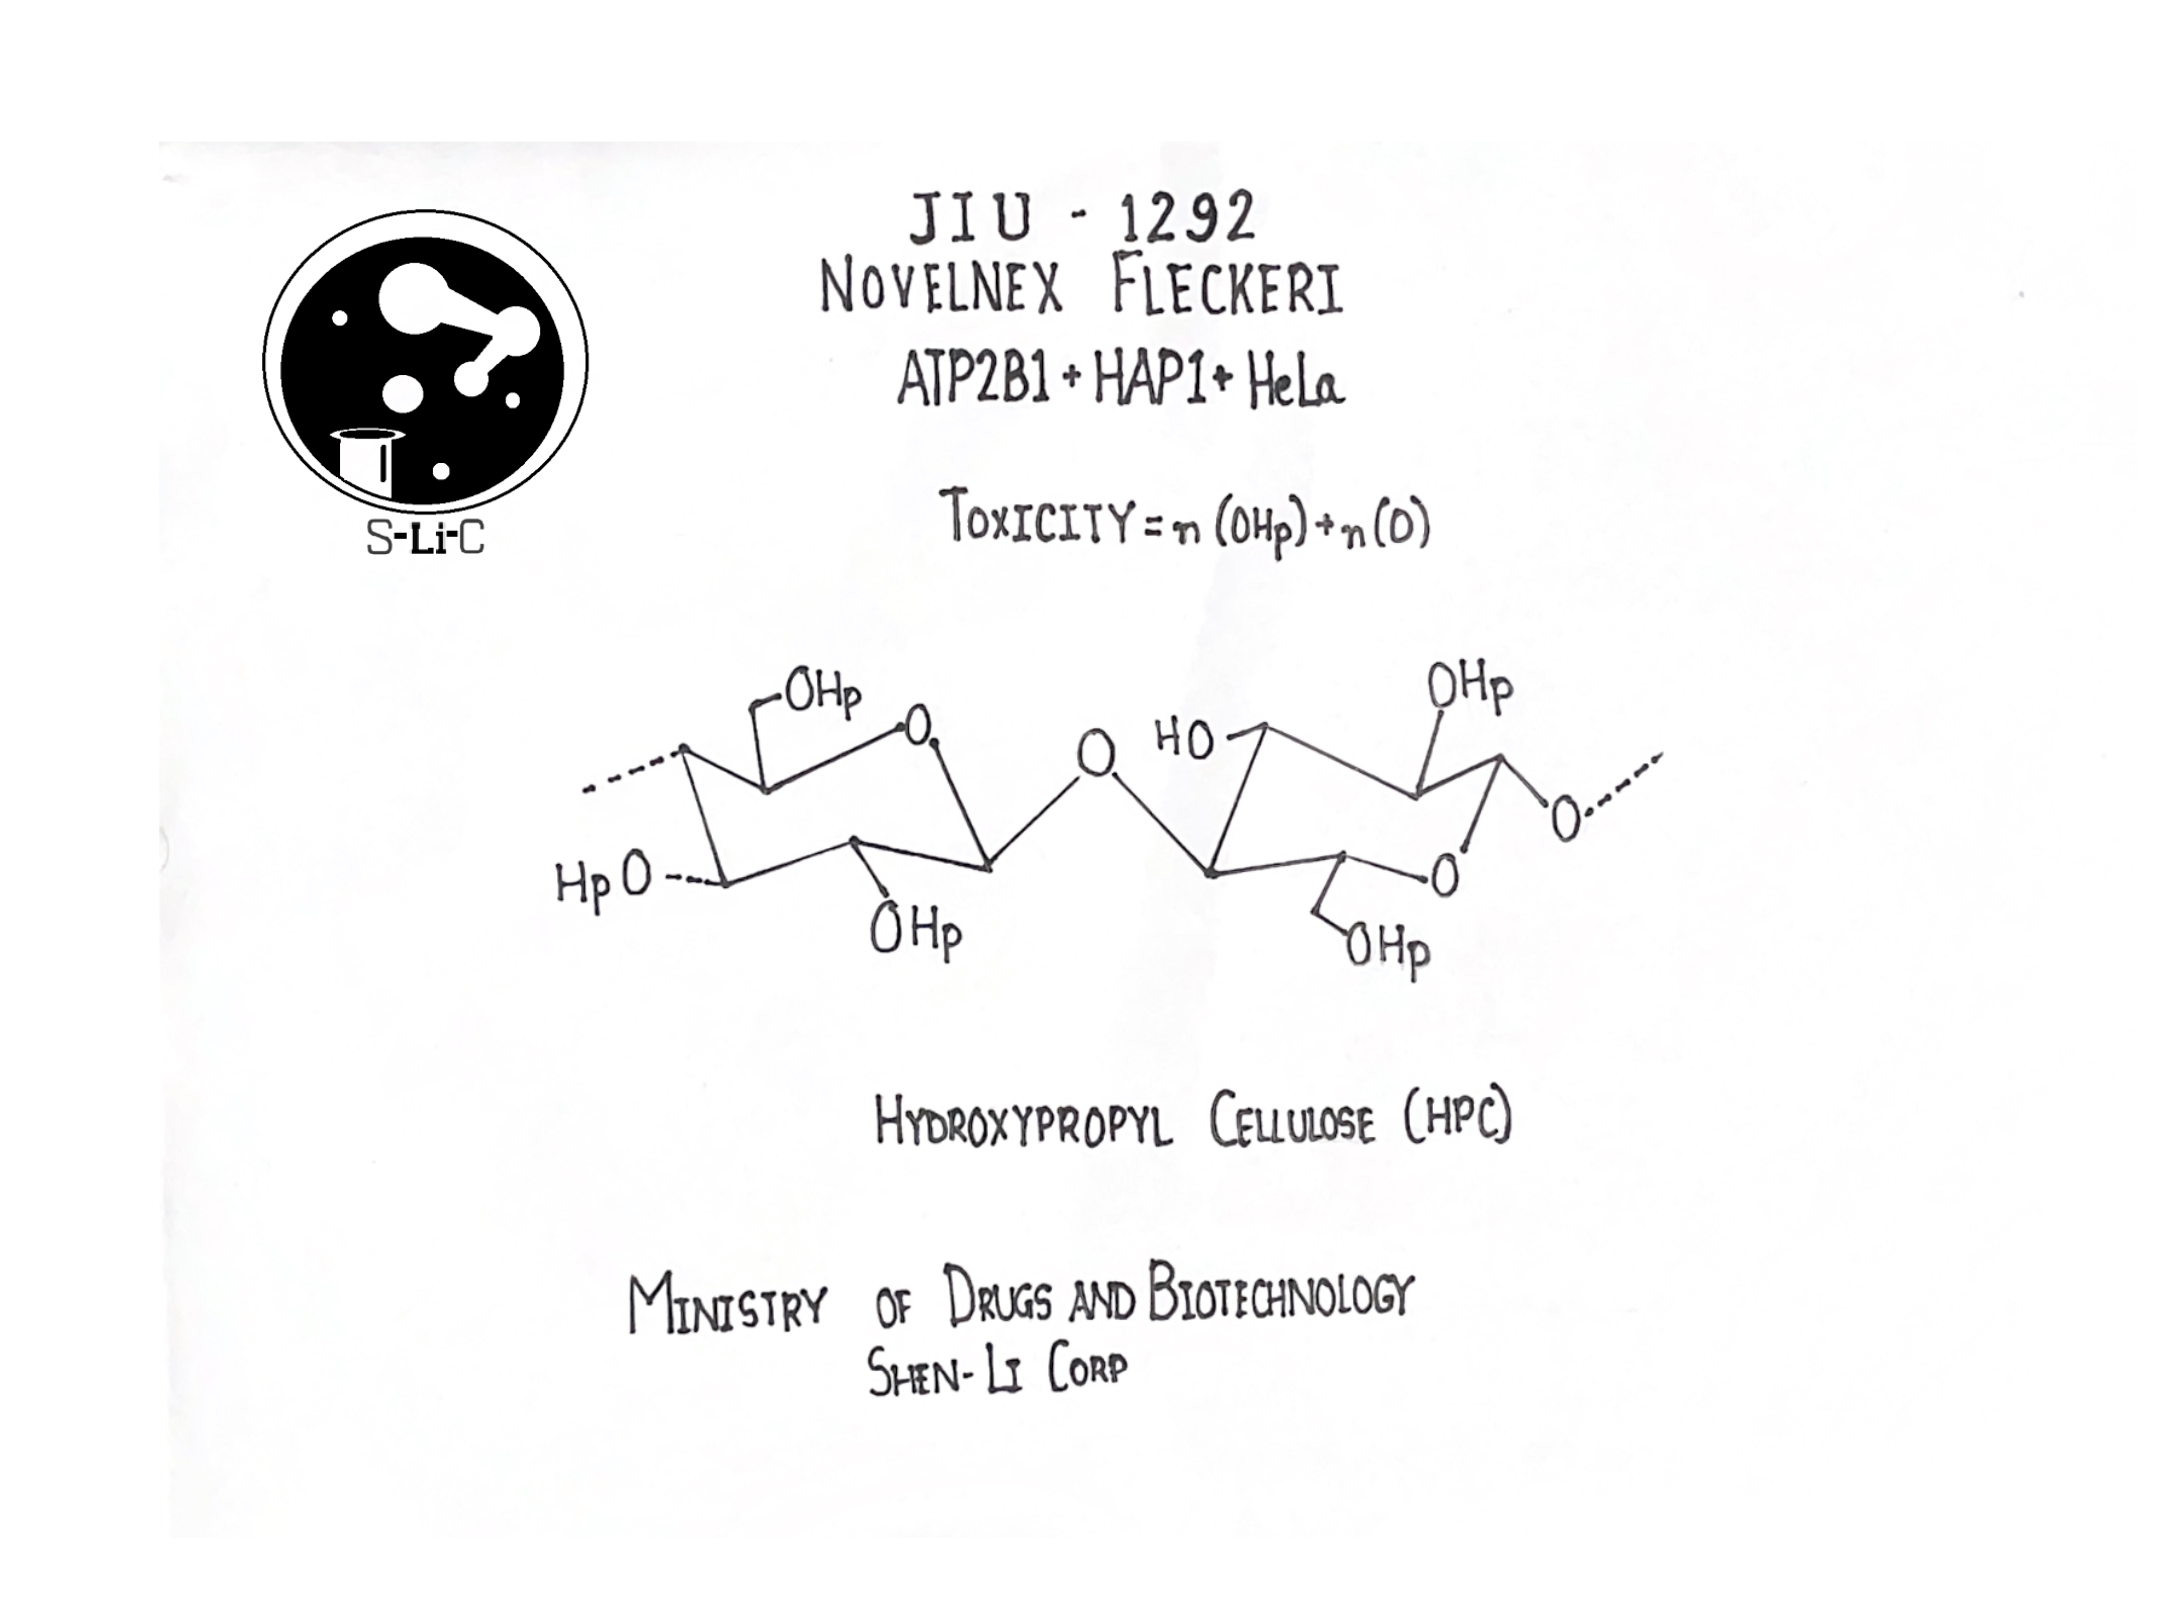 JIU - 1292
NOVELNEX FLECKERI
ATP2B1 + HAP1 + HeLa
S-Li-C
TOXICITY = n (OHp) + n (O)
OHp
O
O
HO
OHp
O
HpO
OHp
O
OHp
HYDROXYPROPYL CELLULOSE (HPC)
MINISTRY OF DRUGS AND BIOTECHNOLOGY
SHEN-LI CORP